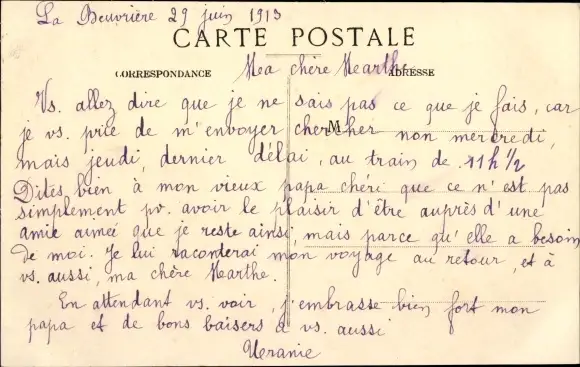 La Beuvrière 29 juin 1913
CARTE POSTALE
CORRESPONDANCE
ADRESSE
Ma chère Marthe
Vs. allez dire que je ne sais pas ce que je fais, car
je vs. prie de m'envoyer chercher non mercredi,
M
mais jeudi, dernier délai, au train de 11h 1/2
Dites bien à mon vieux papa chéri que ce n'est pas
simplement pr. avoir le plaisir d'être auprès d'une
amie aimée que je reste ainsi, mais parce qu'elle a besoin
de moi. Je lui raconterai mon voyage au retour, et à
vs. aussi, ma chère Marthe.
En attendant vs. voir, j'embrasse bien fort mon
papa et de bons baisers à vs. aussi
Uranie